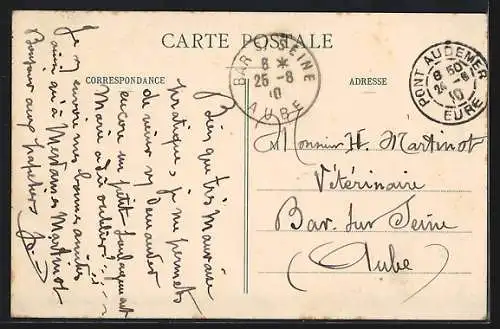 CARTE POSTALE
CORRESPONDANCE
ADRESSE
BAR S. SEINE
8 *
25 -8
10
AUBE
PONT AUDEMER
8 50
24 -8
10
EURE
Monsieur H. Martinot
Vétérinaire
Bar sur Seine
(Aube)
Bien que très mauvaise
pratique, je me permets
de venir vous demander
encore un petit soulagement
Merci d'oublier!
Je vous envoie mes bonnes amitiés
ainsi qu'à Mesdames Martinot
Bonjour aux papetiers